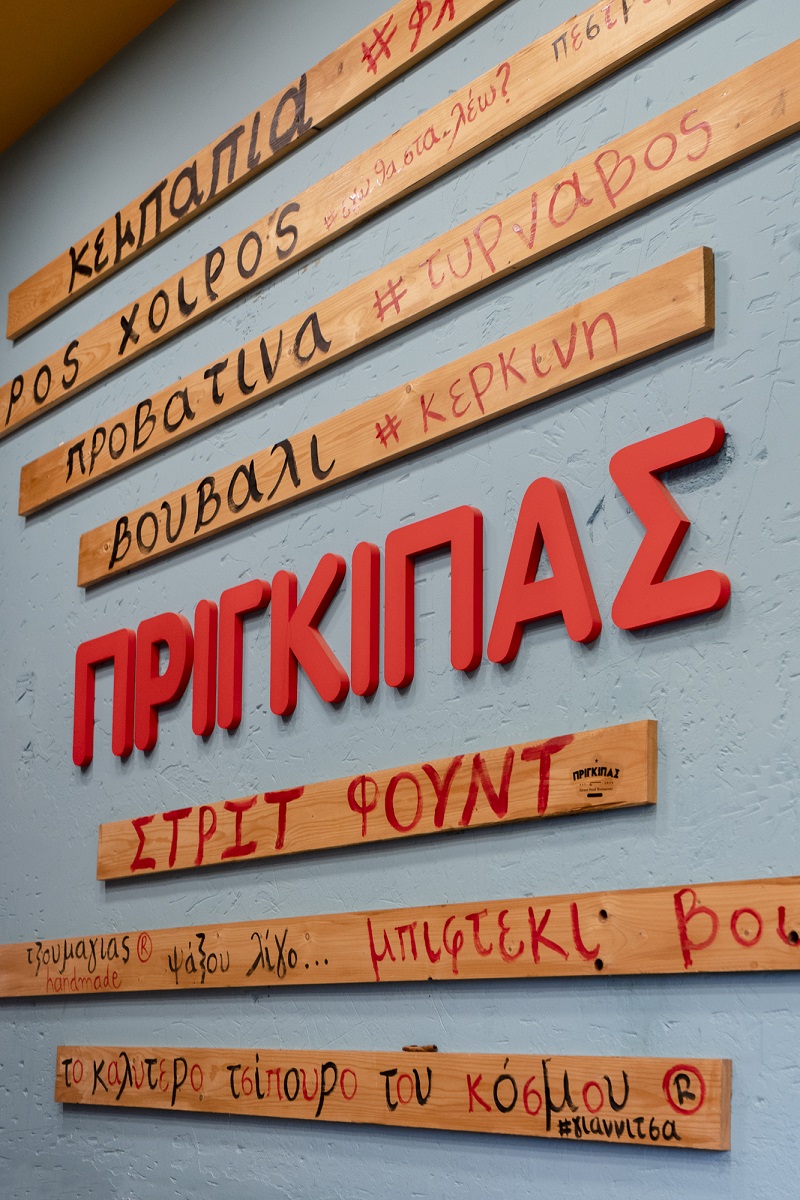 κεμπαπια #φλ
ρος χοιρος #εγω θα στα..λέω?
προβατινα #τυρναβος
βουβαλι #κερκινη
ΠΡΙΓΚΙΠΑΣ
ΣΤΡΙΤ ΦΟΥΝΤ ΠΡΙΓΚΙΠΑΣ
τζουμαγιας® handmade ψάξου λίγο... μπιφτεκι βοι
το καλυτερο τσίπουρο του κόσμου ®
#γιαννιτσα